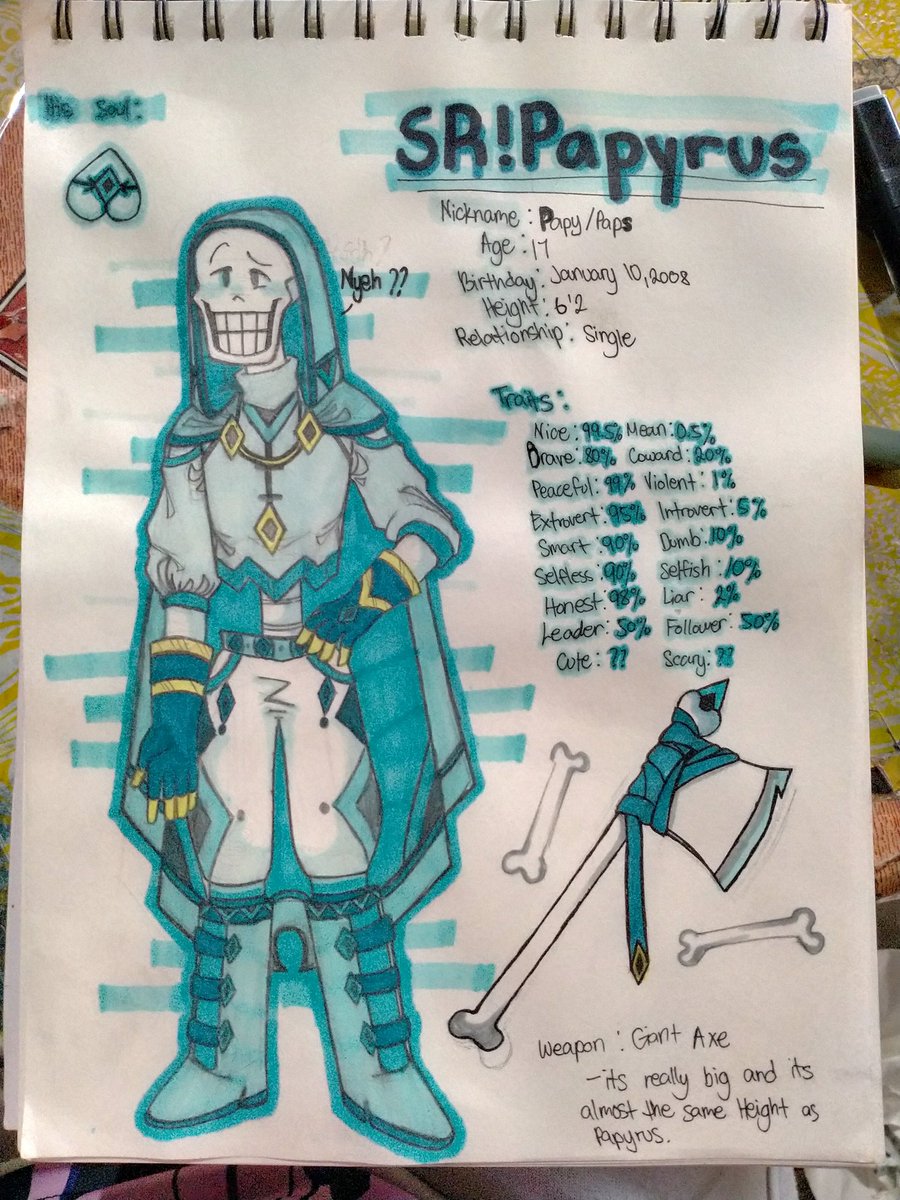 His Soul:
SR!Papyrus
Nickname : Papy/Paps
Age : 17
Birthday : January 10, 2008
Height : 6'2
Relationship : Single
Nyeh ??
Traits :
Nice : 99.5% Mean : 0.5%
Brave : 80% Coward : 20%
Peaceful : 99% Violent : 1%
Extrovert : 95% Introvert : 5%
Smart : 90% Dumb : 10%
Selfless : 90% Selfish : 10%
Honest : 98% Liar : 2%
Leader : 50% Follower : 50%
Cute : ?? Scary : ??
Weapon : Gant Axe
- its really big and its
almost the same Height as
Papyrus.